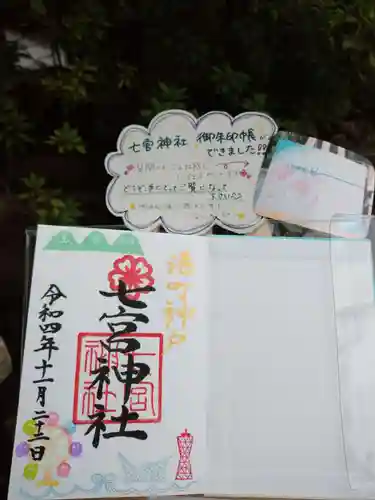 七宮神社 御朱印帳が
できました!!
どうぞ、手にとってご覧になって
下さいませ
港町神戸
七宮神社
七宮
神社
令和四年十一月二十二日